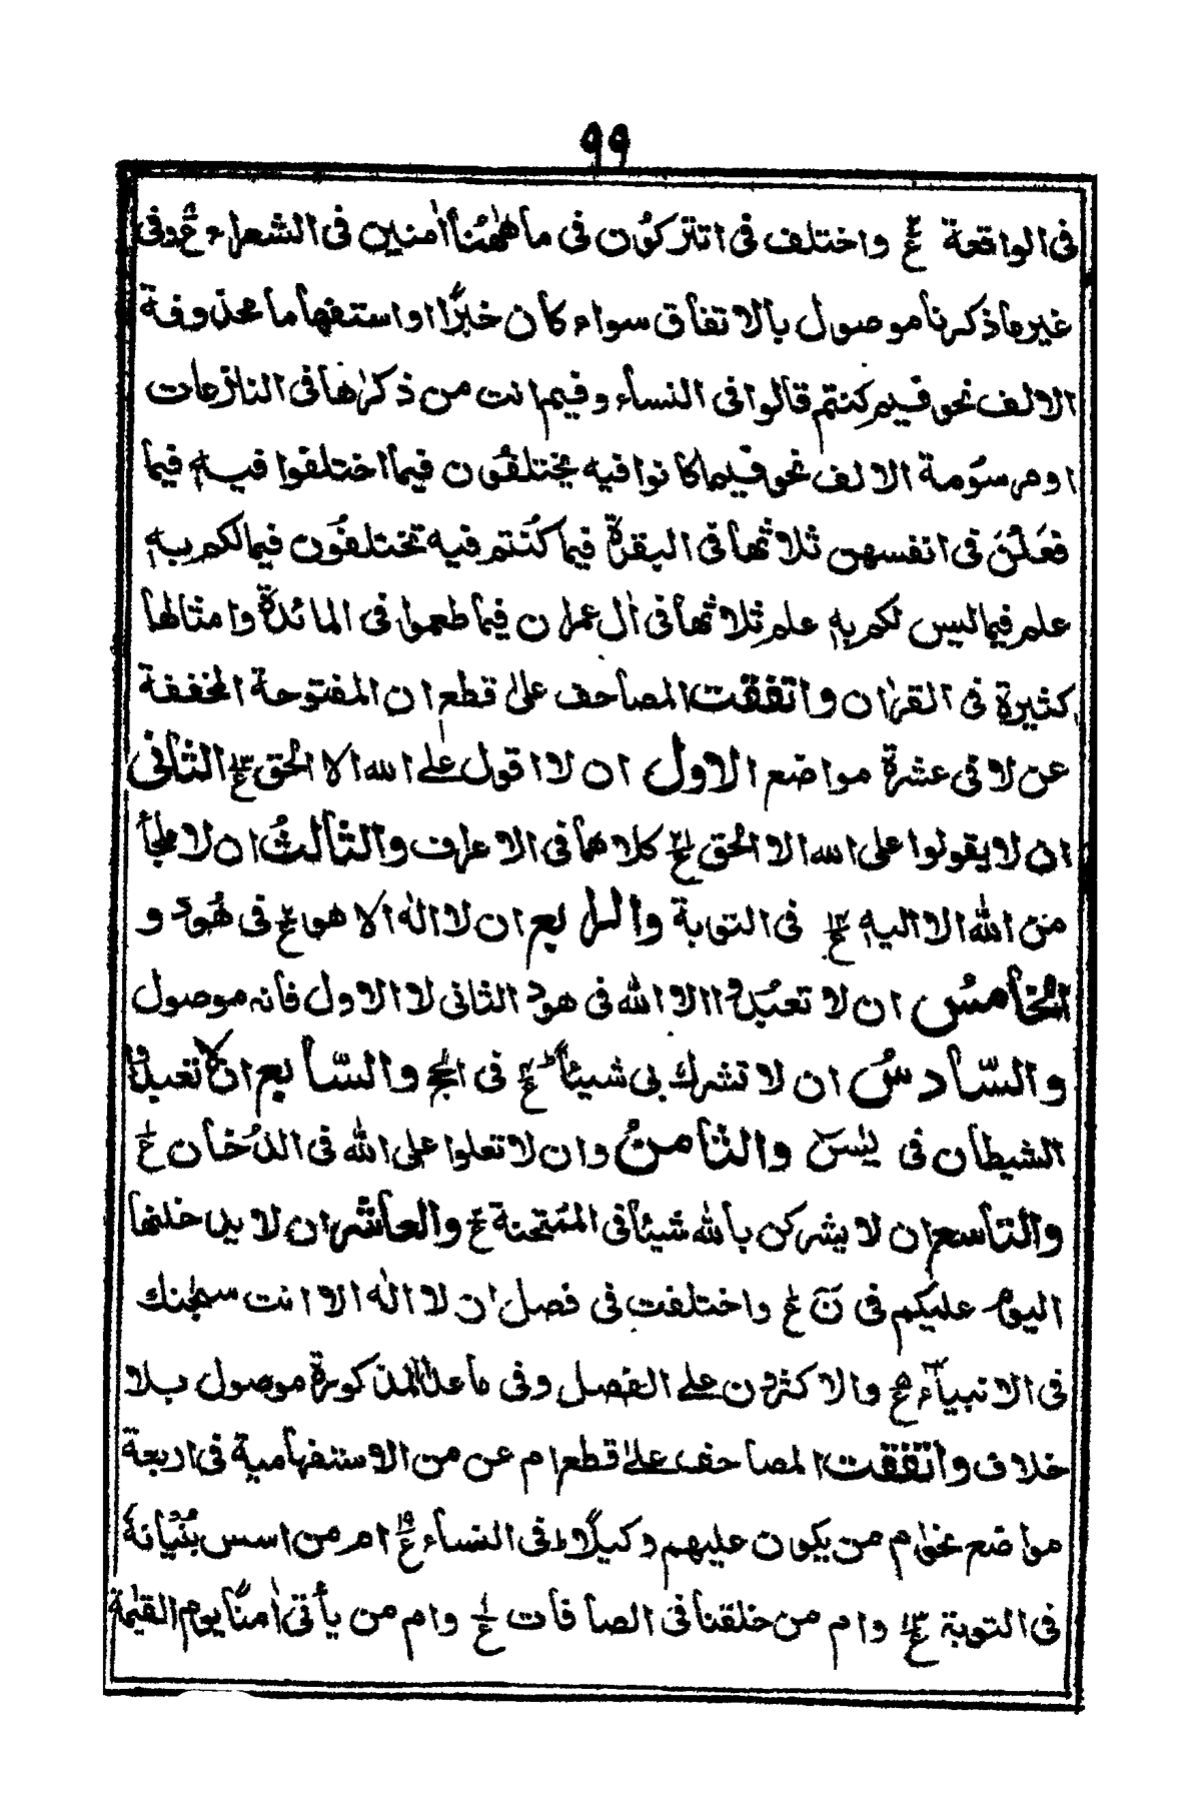 ۹۹
فى الواقعة ع واختلف فى اتتركون فى ما هٰهُنا اٰمنين فى الشعراء ع وفى
غير ما ذكرنا موصول بالاتفاق سواء كان خبرًا او استفهاما محذوفة
الالف نحو فيم كنتم قالوا فى النساء وفيم انت من ذكرٰها فى النازعات
او مرسُومة الالف نحو فيما كانوا فيه يختلفُون فيما اختلفوا فيه فيما
فعَلْنَ فى انفسهن ثلاثها فى البقرة فيما كُنتم فيه تختلفُون فيما لكم به
علم فيما ليس لكم به علم ثلاثها فى اٰل عمران فيما طعموا فى المائدة وامثالها
كثيرة فى القراٰن واتفقت المصاحف على قطع ان المفتوحة المخففة
عن لا فى عشرة مواضع الاول ان لا اقول على الله الا الحق ع الثانى
ان لا يقولوا على الله الا الحق ع كلاهما فى الاعراف والثالث ان لا ملجأ
من الله الا اليه ع فى التوبة والرابع ان لا اله الا هو ع فى هُود و
الخامسُ ان لا تعبُدوا الا الله فى هود الثانى لا الاول فانه موصول
والسّادسُ ان لا تشرك بى شيئًا ع فى الحج والسّابع ان لا تعبدوا
الشيطان فى يٰسٓ والثامنُ وان لا تعلوا على الله فى الدُخان ع
والتاسع ان لا يشركن بالله شيئا فى الممتحنة ع والعاشر ان لا يدخلنها
اليوم عليكم فى نٓ ع واختلفت فى فصل ان لا اله الا انت سبحٰنك
فى الانبيآء ع والاكثرون على الفصل وفى ما عدا المذكورة موصول بلا
خلاف واتفقت المصاحف على قطع ام عن من الاستفهامية فى اربعة
مواضع نحو ام من يكون عليهم وكيلًا فى النساء ع ام من اسس بُنيانه
فى التوبة ع وام من خلقنا فى الصافات ع وام من يأتى اٰمنًا يوم القيٰمة